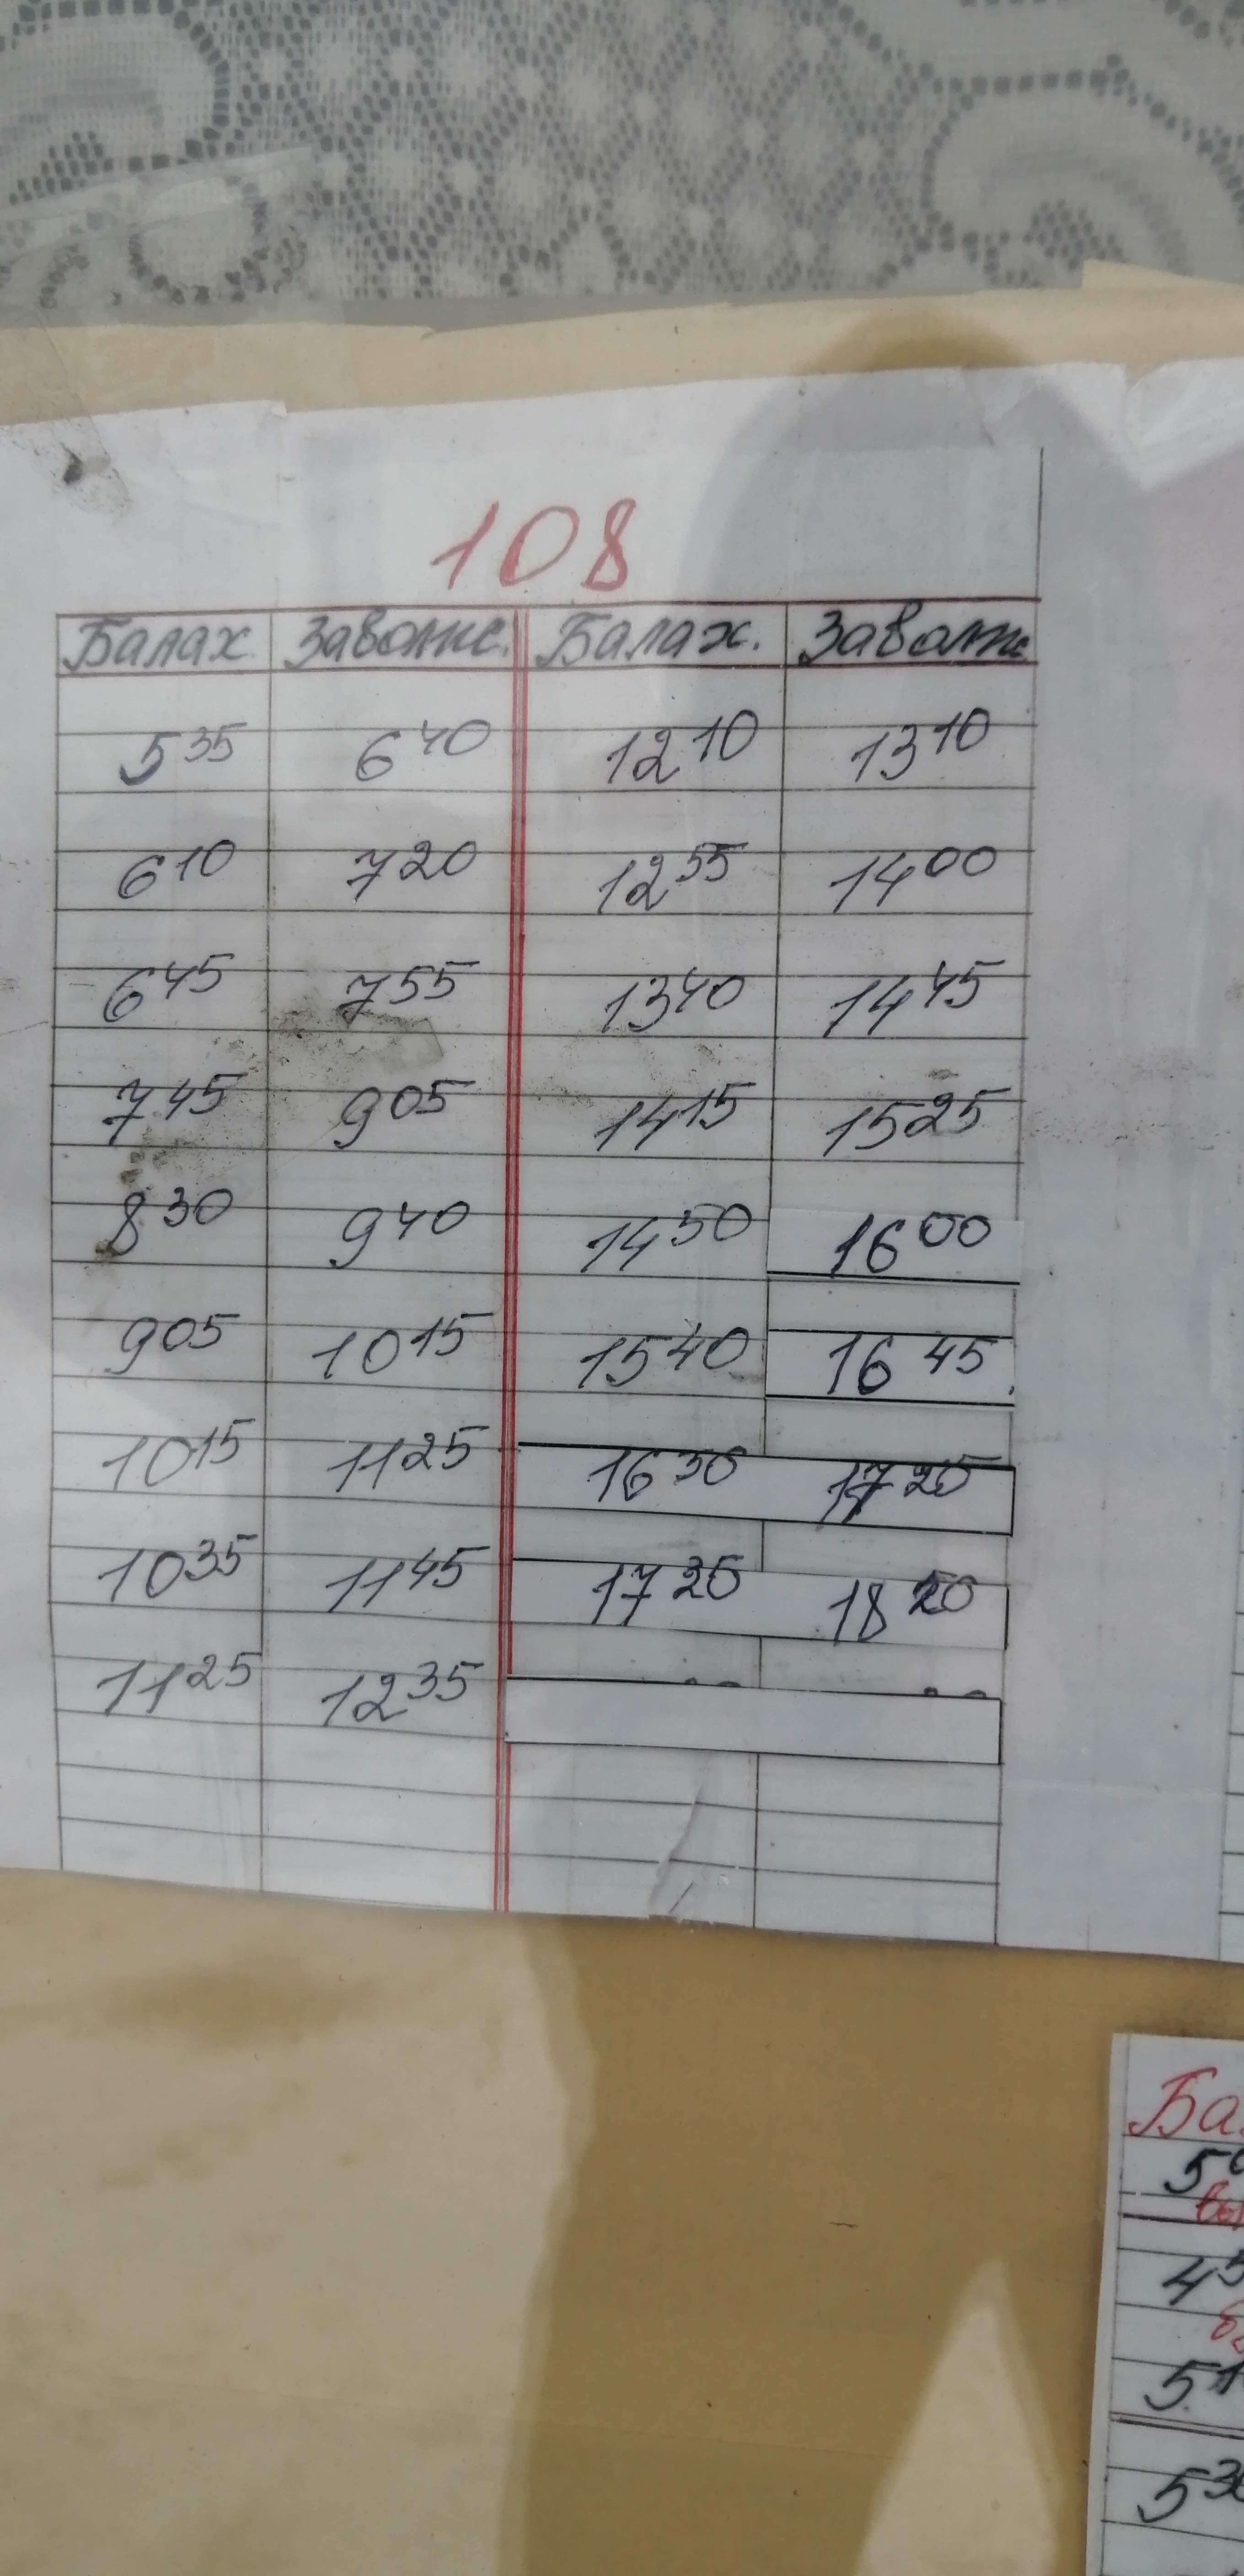 108
Балах. Заволж. Балах. Заволж
5 35 6 40 12 10 13 10
6 10 7 20 12 55 14 00
6 45 7 55 13 40 14 45
7 45 9 05 14 15 15 25
8 30 9 40 14 50 16 00
9 05 10 15 15 40 16 45
10 15 11 25 16 30
10 35 11 45 18 20
11 25 12 35
Ба
5
4 5
5 1
5 3